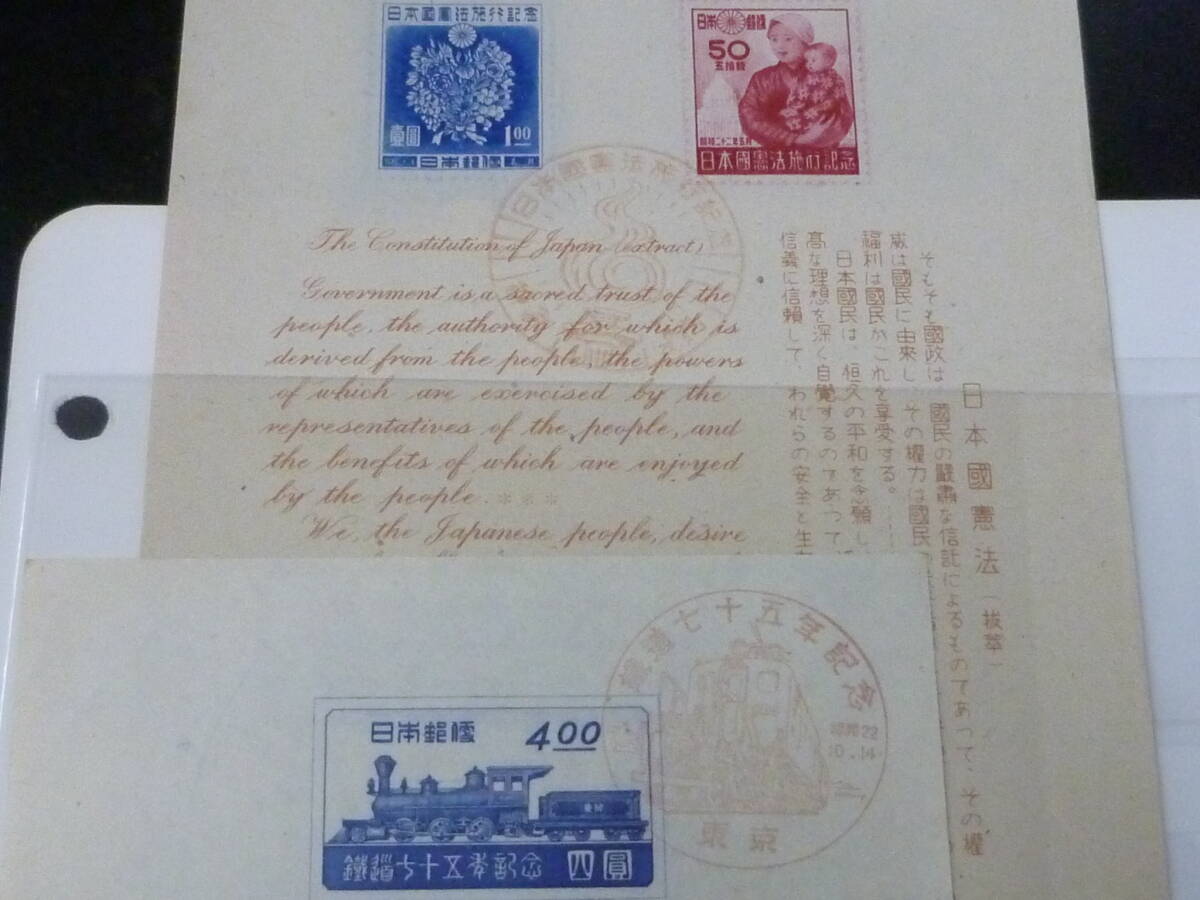 日本國憲法施行記念
壹圓
1.00
日本郵便
日本郵便
50
五拾錢
昭和二十二年五月
日本國憲法施行記念
日本國憲法施行記念
The Constitution of Japan (extract)
Government is a sacred trust of the
people, the authority for which is
derived from the people, the powers
of which are exercised by the
representatives of the people, and
the benefits of which are enjoyed
by the people. ※ ※ ※
We, the Japanese people, desire
日本國憲法（拔萃）
そもそも國政は、國民の嚴肅な信託によるものであつて、その權
威は國民に由來し、その權力は國民
福利は國民がこれを享受する。
日本國民は、恒久の平和を念願し、
高な理想を深く自覺するのであつて、
信義に信賴して、われらの安全と生存
鐵道七十五年記念
昭和22
10.14
東京
日本郵便
4.00
鐵道七十五年記念
四圓